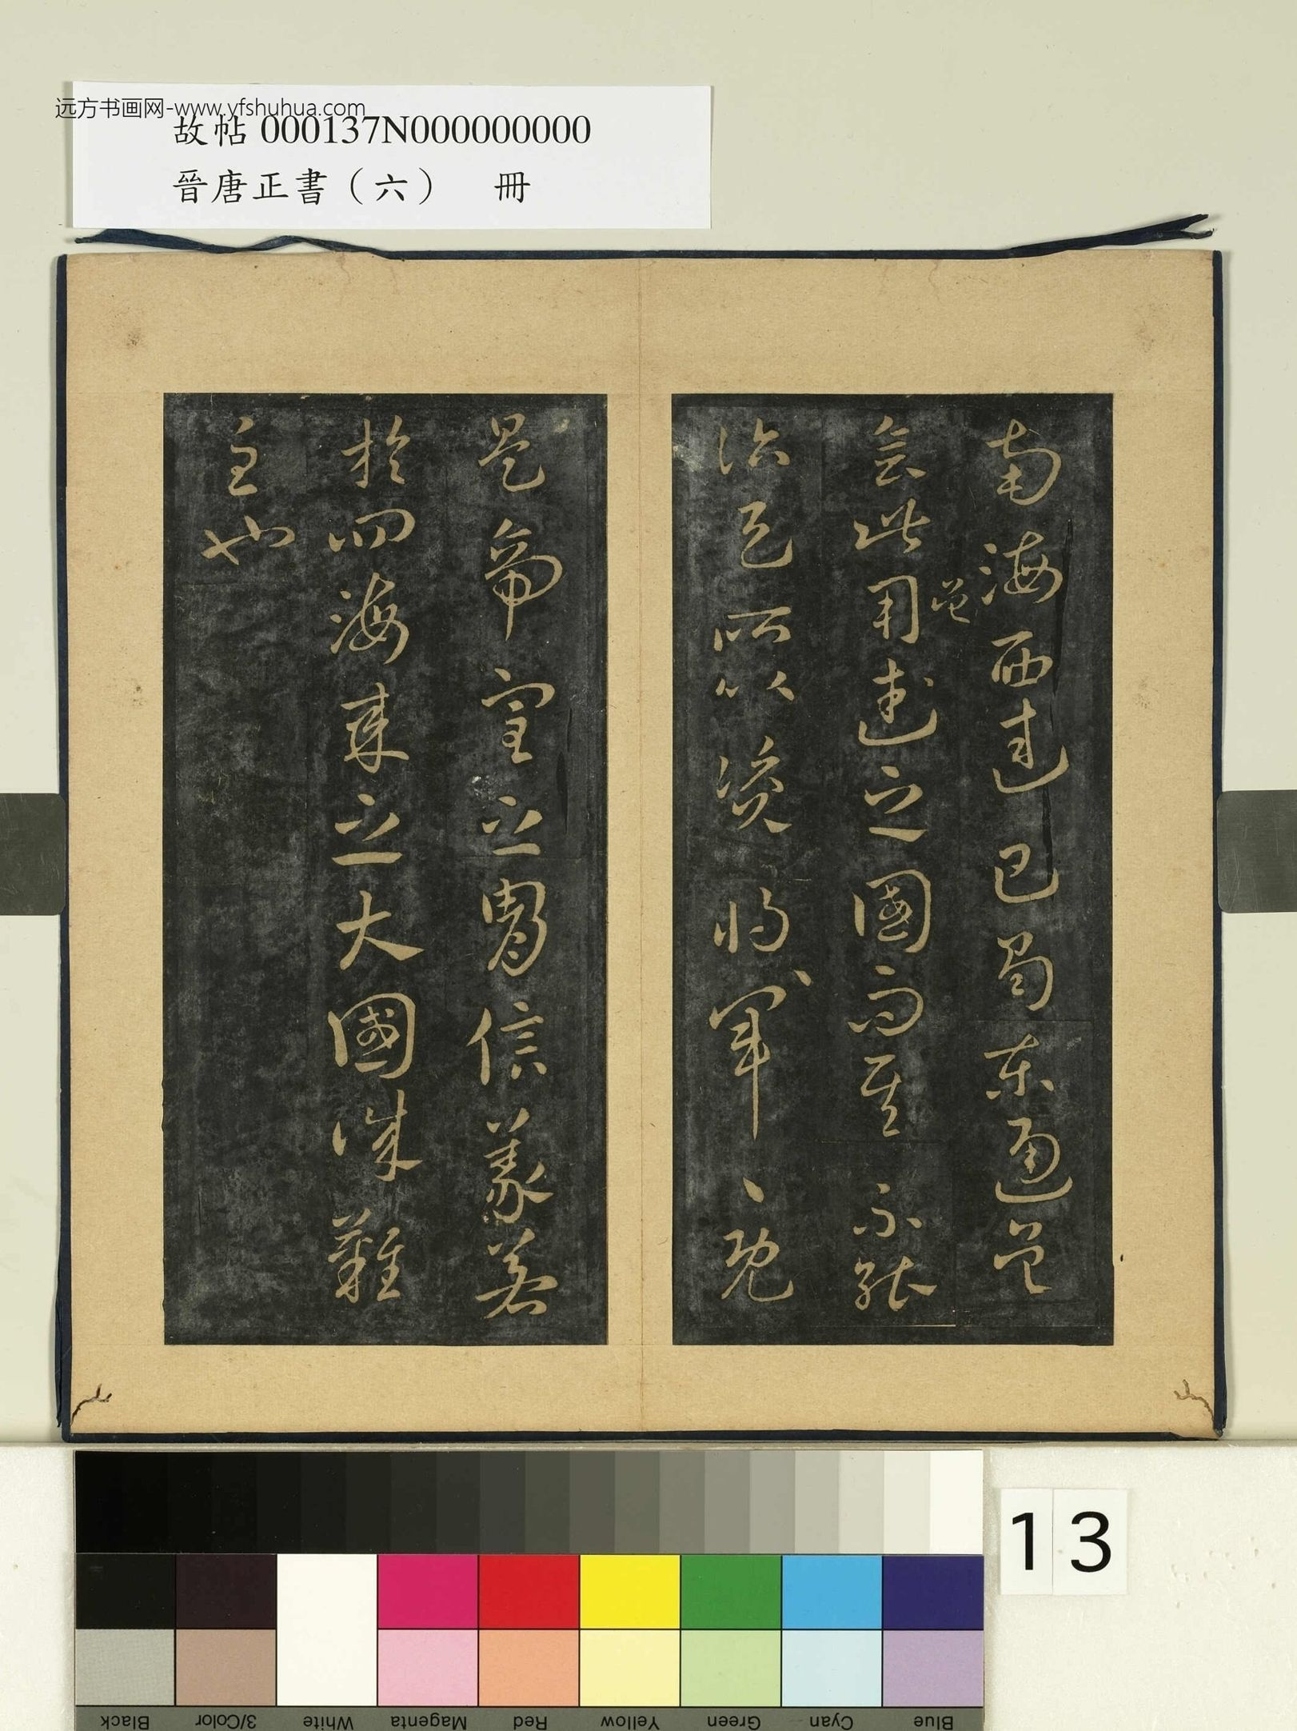 远方书画网-www.yfshuhua.com
故帖 000137N000000000
晉唐正書（六） 冊
南海西連巴蜀東通吳
會此用武之國而其不能
治是所以資將軍〻既
是帝室之胄信義著
於四海之大國難
主也
13
Black 3/Color White Magenta Red Yellow Green Cyan Blue